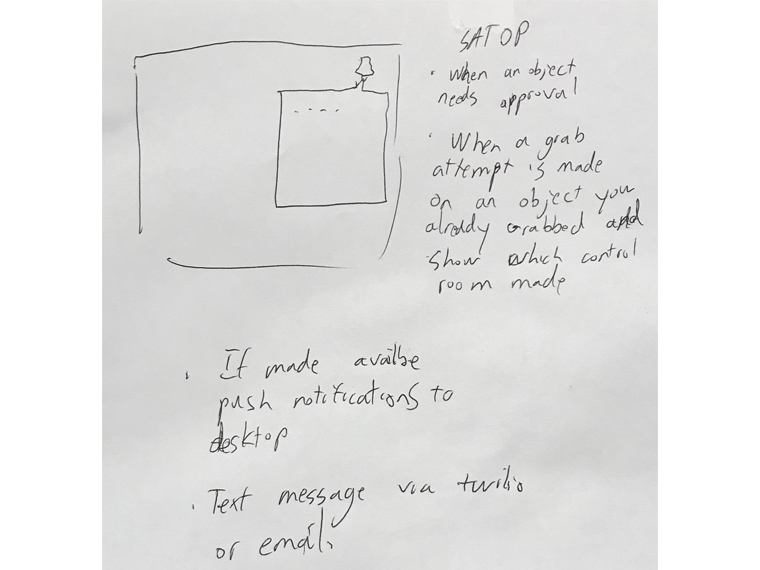 SATOP
· When an object
needs approval
· When a grab
attempt is made
on an object you
alredy grabbed and
show which control
room made
· If made availbe
push notifications to
desktop
· Text message via twilio
or email.